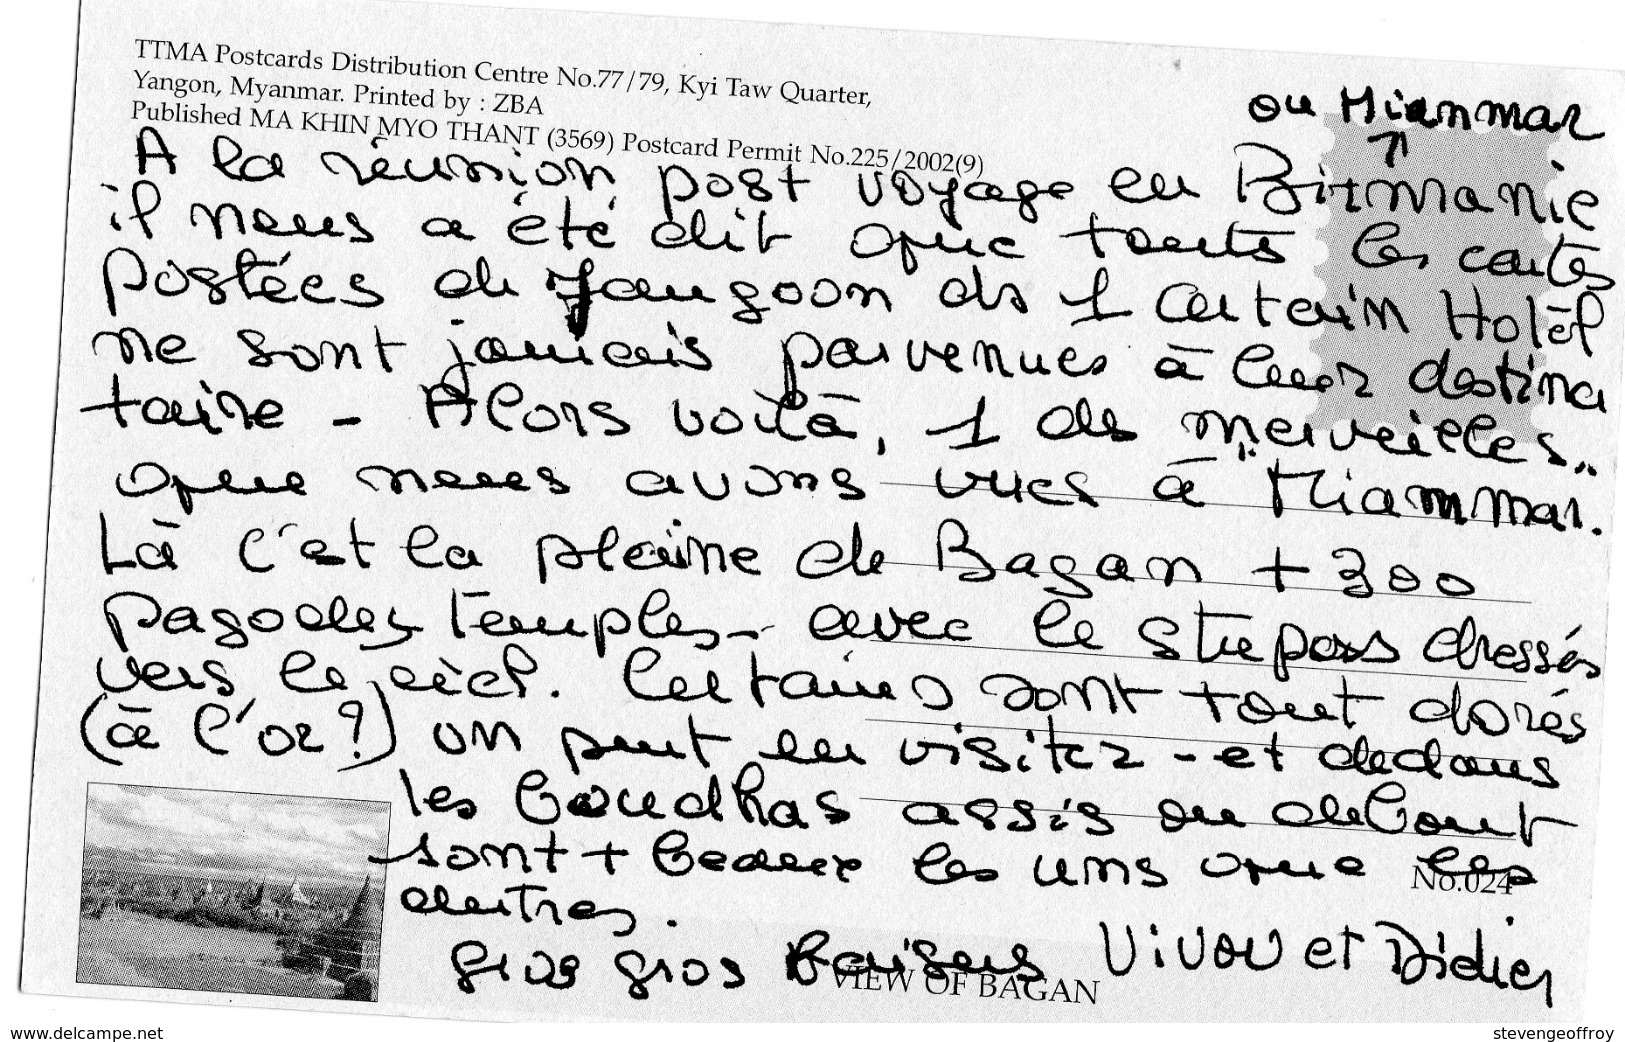 TTMA Postcards Distribution Centre No.77/79, Kyi Taw Quarter,
Yangon, Myanmar. Printed by : ZBA
Published MA KHIN MYO THANT (3569) Postcard Permit No.225/2002(9)
ou Miammar
A la réunion post voyage en Birmanie
il nous a été dit que touts les cartes
postées de Yangoon ds 1 certain Hotêl
ne sont jamais parvenues à leur destina
taire - Alors voilà, 1 des "merveilles"
que nous avons vues à Miammar.
Là c'est la plaine de Bagan + 300
pagodes temples - avec le stupas dressés
vers le cièl. Certains sont tout dorés
(à l'or?) on peut en visiter - et dedans
les boudhas assis ou debout
sont + beaux les uns que les
autres.
gros gros baisers Vivou et Didier
No.024
VIEW OF BAGAN
www.delcampe.net
stevengeoffroy